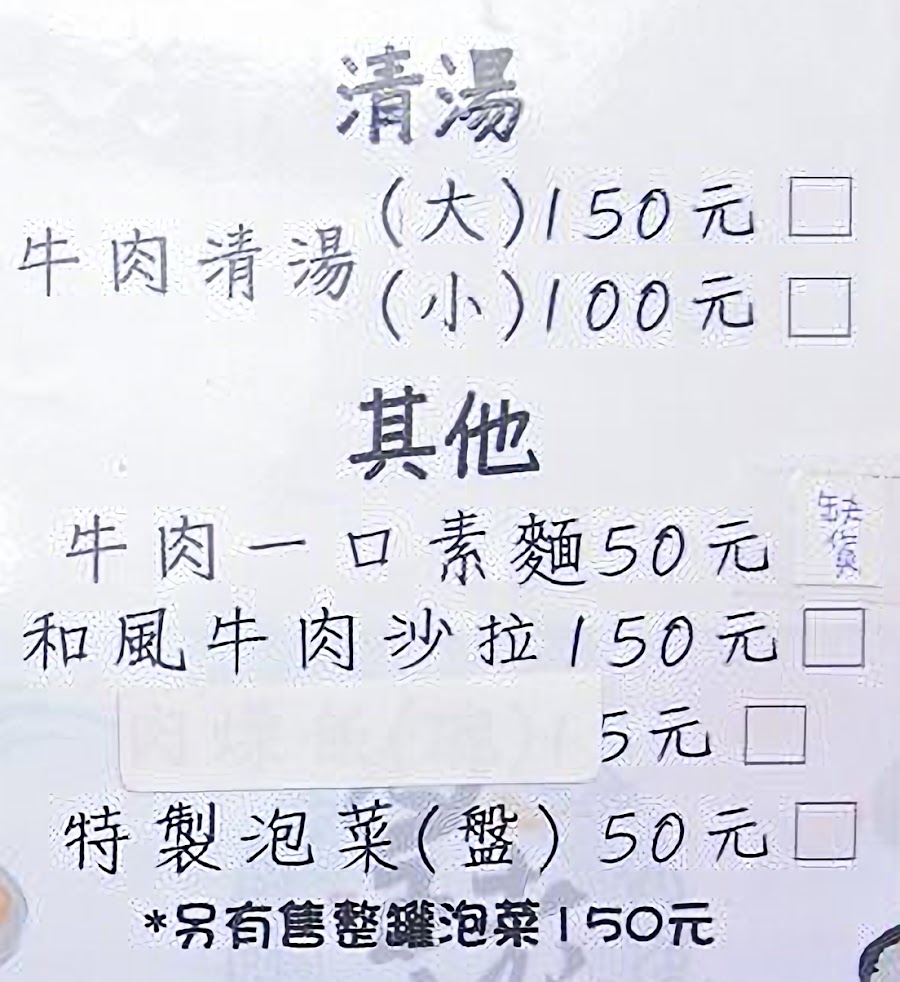 清湯
牛肉清湯(大)150元
(小)100元
其他
牛肉一口素麵50元 缺貨
和風牛肉沙拉150元
5元
特製泡菜(盤)50元
*另有售整罐泡菜150元